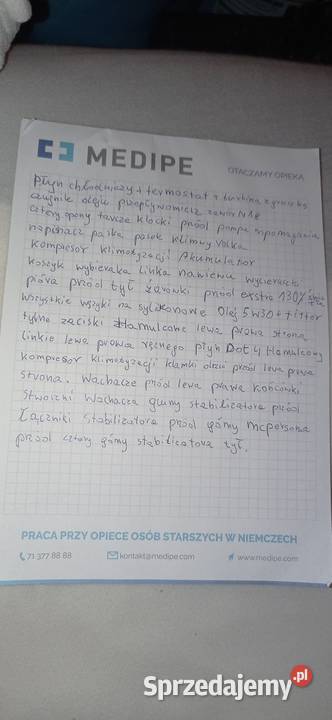 MEDIPE
OTACZAMY OPIEKĄ
Płyn chłodniczy + termostat + turbina z gruszką
czujnik oleju przepływomierz zawór
cztery opony tarcze klocki przód pompa wspomagania
napinacz paska pasek klimy
kompresor klimatyzacji Akumulator
koszyk wybieraka linka nawiewu wycieraczki
pióra przód tył żarówki przód extra 130%
wszystkie wężyki na sylikonowe Olej 5w30 + filter
tylne zaciski Hamulcowe lewa prawa strona
linkie lewa prawa ręcznego płyn Dot 4 Hamulcowy
kompresor klimatyzacji klamki drzwi przód lewa prawa
strona. Wachacze przód lewa prawa końcówki
stworzni wachacza gumy stabilizatora przód
Łączniki stabilizatora przód gómy mcpersona
przód cztery gómy stabilizatora tył.
PRACA PRZY OPIECE OSÓB STARSZYCH W NIEMCZECH
71 377 88 88 kontakt@medipe.com www.medipe.com
Sprzedajemy.pl